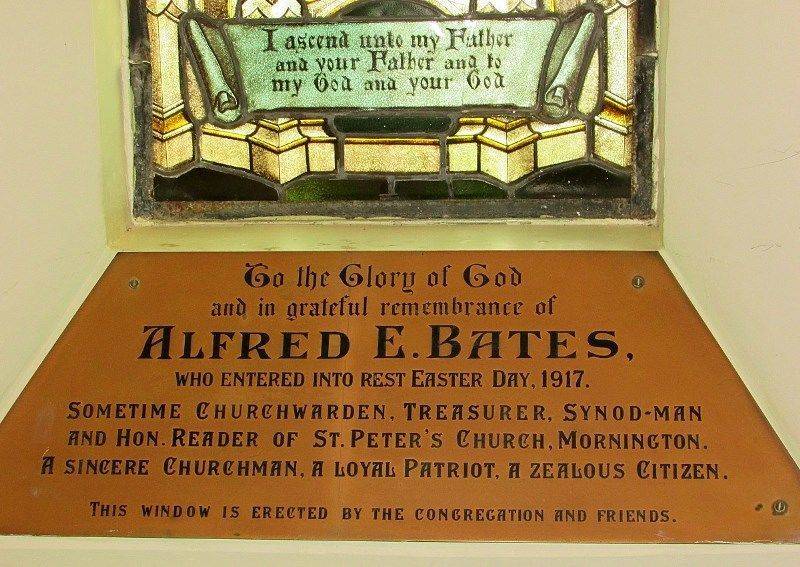 I ascend unto my Father
and your Father and to
my God and your God
To the Glory of God
and in grateful remembrance of
ALFRED E. BATES,
WHO ENTERED INTO REST EASTER DAY, 1917.
SOMETIME CHURCHWARDEN, TREASURER, SYNOD-MAN
AND HON. READER OF ST. PETER'S CHURCH, MORNINGTON.
A SINCERE CHURCHMAN, A LOYAL PATRIOT, A ZEALOUS CITIZEN.
THIS WINDOW IS ERECTED BY THE CONGREGATION AND FRIENDS.